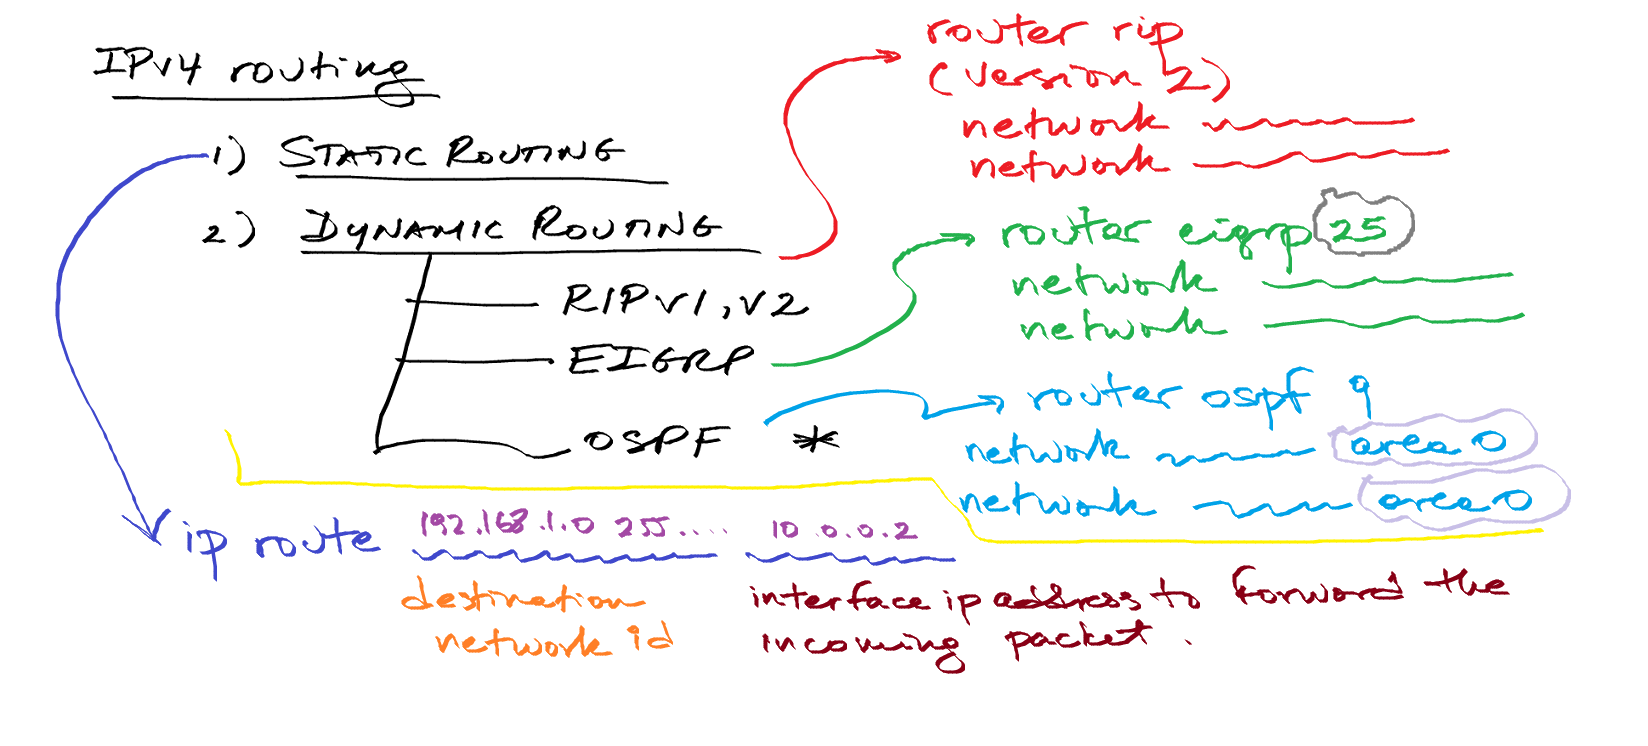 IPv4 routing
1) STATIC ROUTING
2) DYNAMIC ROUTING
RIPV1, V2
EIGRP
OSPF *
router rip
(version 2)
network
network
router eigrp 25
network
network
router ospf 9
network area 0
network area 0
ip route 192.168.1.0 255.... 10.0.0.2
destination
network id
interface ip address to forward the
incoming packet.